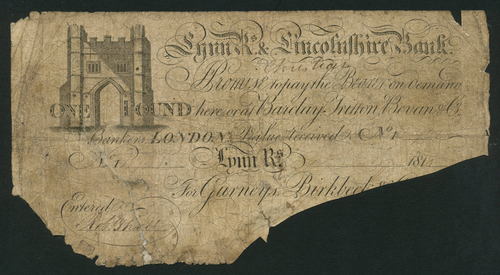 Lynn Rs. & Lincolnshire Bank.
Promise to pay the Bearer on Demand
ONE POUND here or at Barclay, Tritton, Bevan & Co.
Bankers LONDON Value received No. 1
No. 1
Lynn Rs. 181
For Gurneys, Birkbeck &
Entered